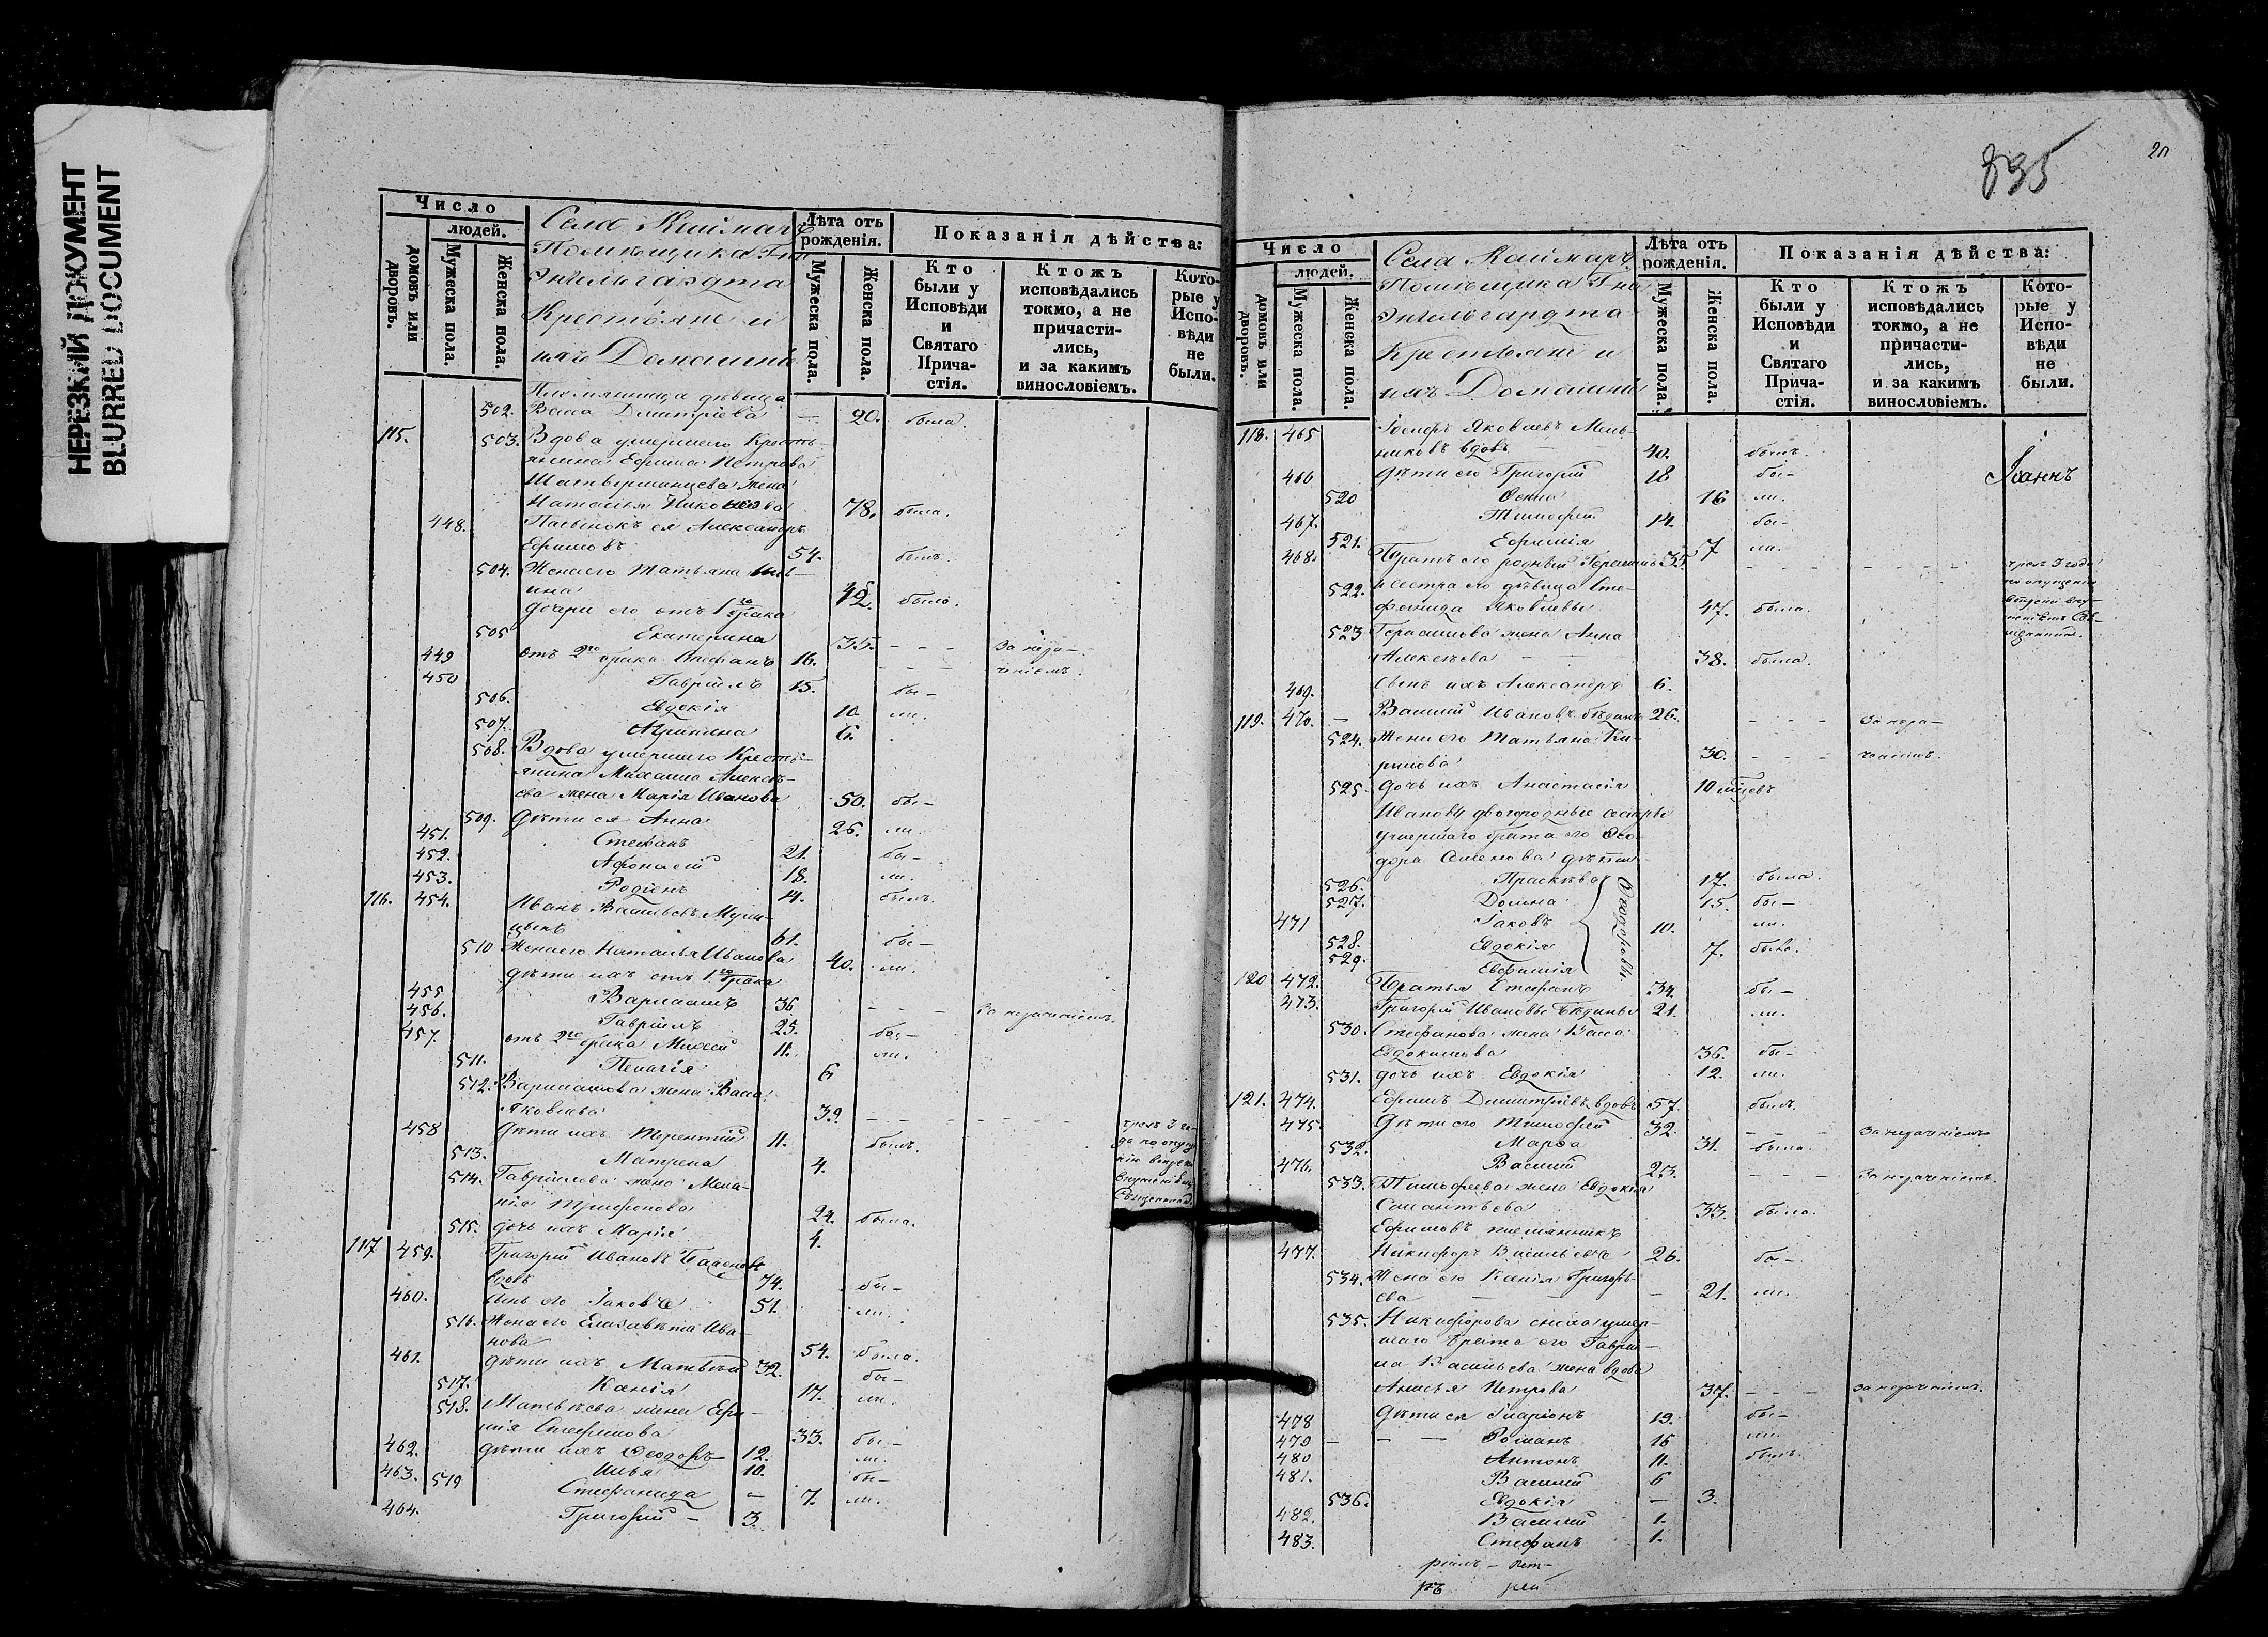 НЕРЕЗКИЙ ДОКУМЕНТ
BLURRED DOCUMENT
Число
людей.
домовъ или дворовъ.
Мужеска пола.
Женска пола.
Села Каймаръ
Помѣщика Гна
Энгельгардта
Крестьяне и
ихъ Домашніе
Лѣта отъ рожденія.
Мужеска пола.
Женска пола.
Показанія дѣйства:
Кто были у Исповѣди и Святаго Причастія.
Ктожъ исповѣдались токмо, а не причастились, и за какимъ винословіемъ.
Которые у Исповѣди не были.
Племянница дѣвица
502. Васса Димитріева — 20. была.
115. 503. Вдова умершаго Кресть-
янина Ефима Петрова
жена
Наталья 78. была.
448. Пасынокъ ея Александръ
Ефимовъ 54. былъ.
504. Жена его Татьяна
ина 42. была.
дочри его отъ 1го брака
505 Екатерина 35. - - - За нера-
449 отъ 2го брака Стефанъ 16. - - - ченіемъ.
450 Гавріилъ 15. бы-
506. Евдокія 10. ли.
507. Агрипина 6.
508. Вдова умершаго Кресть-
янина Михаила Алексѣ-
ева жена Марія Иванова 50. бы-
509. дѣти ея Анна 26. ли.
451. Стефанъ 21. бы-
452. Афонасій 18. ли.
453. Родіонъ 14. былъ.
116. 454. Иванъ Васильевъ
61. бы-
510 Жена его Наталья Иванова 40. ли.
дѣти ихъ отъ 1го брака
455 Варлаамъ 36 - - - За нераченіемъ.
456. Гавріилъ 25. бы-
457. отъ 2го брака Михей 11. ли.
511. Пелагія 6
512. Варлаамова жена Васса
Яковлева 39. - - - - - -
458 дѣти ихъ Терентій 11. былъ.
513. Матрена 4.
514. Гавріилова жена Мела-
нія Трифонова 24. была.
515. дочь ихъ Марія 4.
117 459. Григорій Ивановъ
вдовъ 74. бы-
460. Сынъ его Іаковъ 51. ли.
516. Жена его Елизавета Ива-
нова 54. была.
461. дѣти ихъ Матвѣй 32. бы-
517. Ксенія 17. ли.
518. Матвѣева жена Ефи-
мія Стефанова 33. бы-
462. дѣти ихъ Ѳеодоръ 12. ли.
463. Илья 10. бы-
519 Стефанида — 7. ли.
464. Григорій — 3.
835
20
Число
людей.
домовъ или дворовъ.
Мужеска пола.
Женска пола.
Села Каймаръ
Помѣщика Гна
Энгельгардта
Крестьяне и
ихъ Домашніе
Лѣта отъ рожденія.
Мужеска пола.
Женска пола.
Показанія дѣйства:
Кто были у Исповѣди и Святаго Причастія.
Ктожъ исповѣдались токмо, а не причастились, и за какимъ винословіемъ.
Которые у Исповѣди не были.
118. 465 Іосифъ Яковлевъ Мель-
никовъ вдовъ 40. былъ.
466 дѣти его Григорій 18 бы- Іоаннъ
520 16 ли.
467. Тимофей 14. бы-
521. Ефимія 7 ли.
468. Братъ его родный Герасимъ 35. - - - - - -
522. и сестра его дѣвица Сте-
фанида Яковлевы 47. была.
523 Герасимова жена Анна
Алексѣева — — 38. была.
469. Сынъ ихъ Александръ 6.
119. 470. — Василій Ивановъ Бѣдинъ 26. - - - За нера-
524. Жена его Татьяна Ки-
рилова 30. - - - ченіемъ.
525. дочь ихъ Анастасія 10 мѣсцевъ
Ивановы двоюродные сестры
умершаго брата его Ѳео-
дора Семенова дѣти
526. Прасковья 17. была.
527. Домна 15. бы-
471 Іаковъ 10. ли.
528. Евдокія 7. была.
529. Евфимія
Ѳеодоровы.
120 472. Братья Стефанъ 34. бы-
473. Григорій Ивановы Бѣдины 21. ли.
530. Стефанова жена Васса
Евдокимова 36. бы-
531. дочь ихъ Евдокія 12. ли.
121. 474. Ефимъ Димитріевъ вдовъ 57. былъ.
475. дѣти его Тимофей 32. - - - За нераченіемъ
532. Марѳа 31. была.
476. Василій 23. - - - За нераченіемъ.
533. Тимофеева жена Евдокія
33. была.
Ефимовъ племянникъ
477. Никифоръ Васильевъ 26. бы-
534. Жена его Ксенія Григорь-
ева — — — 21. ли.
535. Никифорова сноха умер-
шаго брата его Гаврі-
ла Васильева жена вдова
Анисья Петрова 37. - - - За нераченіемъ.
478 дѣти ея Иларіонъ 19. бы-
479 — — — Романъ 16 ли.
480 Антонъ 11. былъ.
481. Василій 6
536. Евдокія — 3.
482. Василій 1.
483. Стефанъ 1.